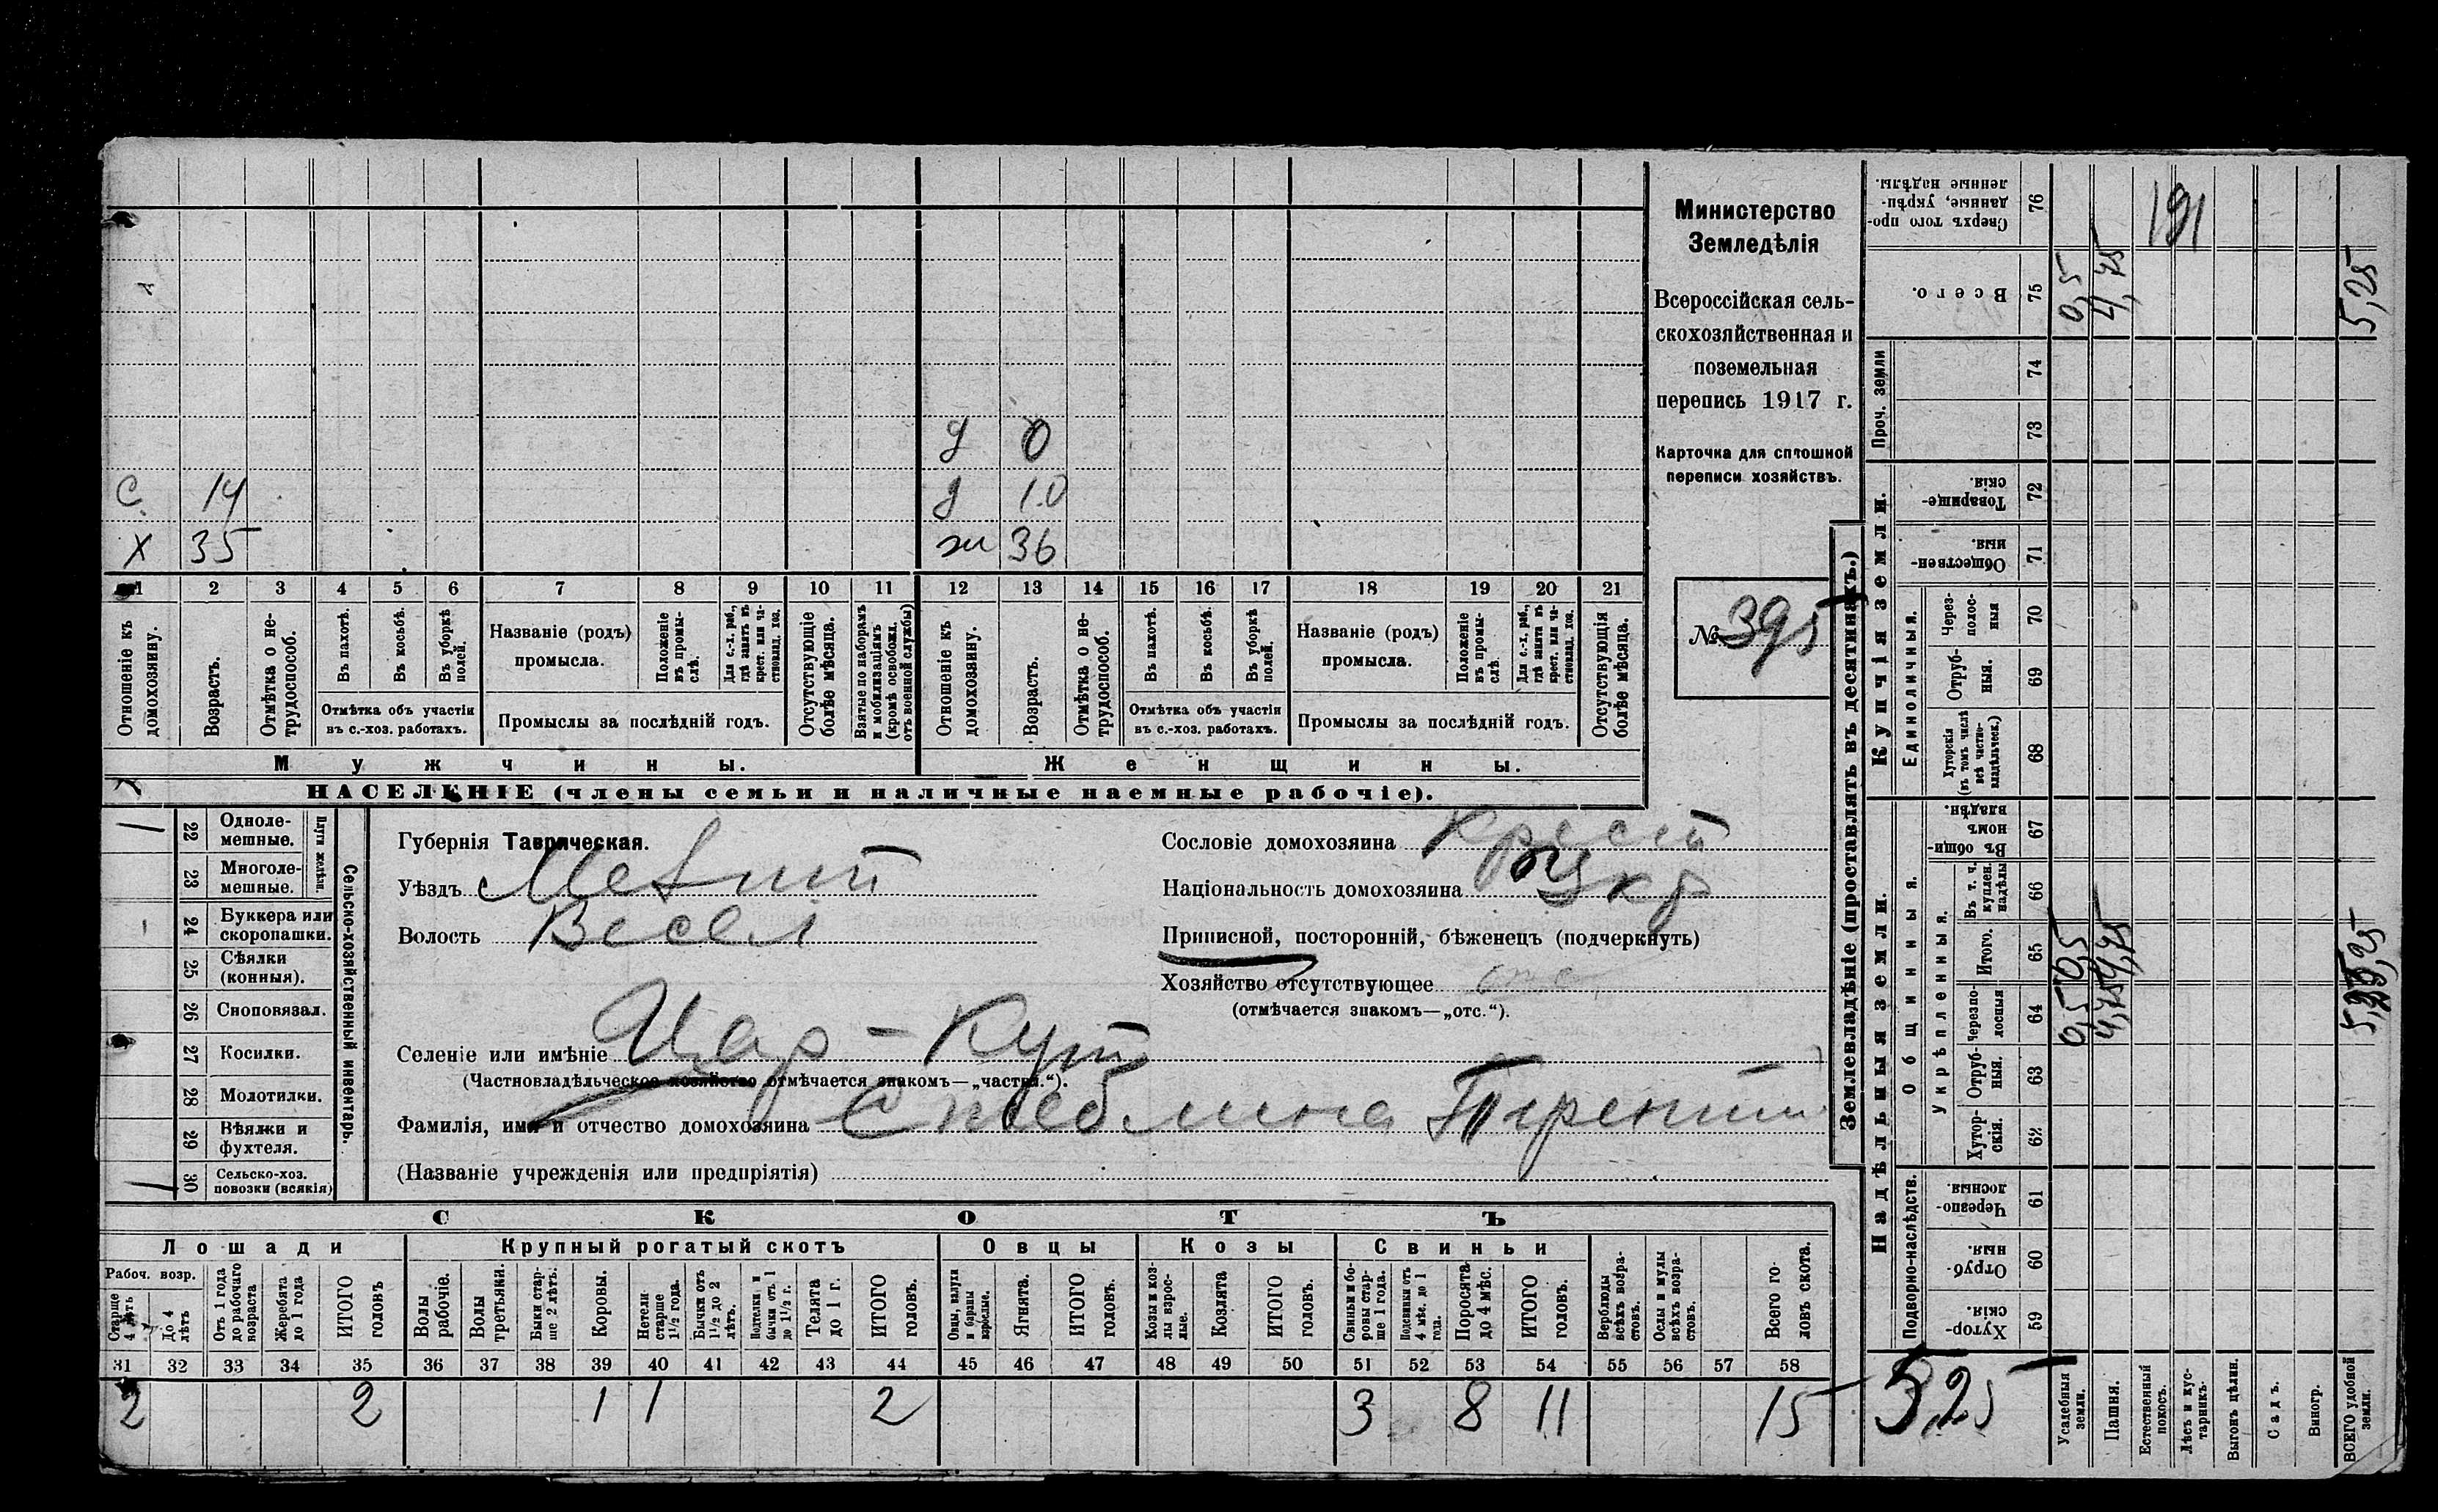 Министерство
Земледѣлія
Всероссійская сель-
скохозяйственная и
поземельная
перепись 1917 г.
Карточка для сплошной
переписи хозяйствъ.
№ 395
д 0
С 14 д 10
Х 35 ж 36
1 2 3 4 5 6 7 8 9 10 11 12 13 14 15 16 17 18 19 20 21
Отношеніе къ домохозяину.
Возрастъ.
Отмѣтка о не-трудоспособ.
Въ пахотѣ.
Въ косьбѣ.
Въ уборкѣ полей.
Отмѣтка объ участіи
въ с.-хоз. работахъ.
Названіе (родъ)
промысла.
Положеніе въ промы-слѣ.
Для с.-х. раб., гдѣ занятъ въ крест. или ча-стновлад. хоз.
Промыслы за послѣдній годъ.
Отсутствующіе болѣе мѣсяца.
Взятые по наборамъ и мобилизаціямъ (кромѣ освобожд. отъ военной службы)
Отношеніе къ домохозяину.
Возрастъ.
Отмѣтка о не-трудоспособ.
Въ пахотѣ.
Въ косьбѣ.
Въ уборкѣ полей.
Отмѣтка объ участіи
въ с.-хоз. работахъ.
Названіе (родъ)
промысла.
Положеніе въ промы-слѣ.
Для с.-х. раб., гдѣ занята въ крест. или ча-стновлад. хоз.
Промыслы за послѣдній годъ.
Отсутствующія болѣе мѣсяца.
Мужчины. Женщины.
НАСЕЛЕНІЕ (члены семьи и наличные наемные рабочіе).
Сельско-хозяйственный инвентарь.
Плуги желѣзн.
22 Одноле-мешные.
23 Многоле-мешные.
24 Буккера или скоропашки.
25 Сѣялки (конныя).
26 Сноповязал.
27 Косилки.
28 Молотилки.
29 Вѣялки и фухтеля.
30 Сельско-хоз. повозки (всякія)
Губернія Таврическая.
Уѣздъ Мелит
Волость Весел
Селеніе или имѣніе Цар-Кут
(Частновладѣльческое хозяйство отмѣчается знакомъ—„частн.“).
Фамилія, имя и отчество домохозяина Терентий
(Названіе учрежденія или предпріятія)
Сословіе домохозяина Крест
Національность домохозяина Укр
Приписной, посторонній, бѣженецъ (подчеркнуть)
Хозяйство отсутствующее
(отмѣчается знакомъ—„отс.“).
СКОТЪ
Лошади Крупный рогатый скотъ Овцы Козы Свиньи
Рабоч. возр.
Старше 4 лѣтъ
До 4 лѣтъ
Отъ 1 года до рабочаго возраста
Жеребята до 1 года
ИТОГО головъ
Волы рабочіе.
Волы третьяки.
Быки стар-ше 2 лѣтъ.
Коровы.
Нетели старше 1½ года.
Бычки отъ 1½ до 2 лѣтъ.
Подтелки и бычки отъ 1 до 1½ г.
Телята до 1 г.
ИТОГО головъ.
Овцы, валухи и бараны взрослые.
Ягнята.
ИТОГО головъ.
Козы и коз-лы взрос-лые.
Козлята
ИТОГО головъ.
Свиньи и бо-ровы стар-ше 1 года.
Подсвинки отъ 4 мѣс. до 1 года.
Поросята до 4 мѣс.
ИТОГО головъ.
Верблюды всѣхъ возра-стовъ.
Ослы и мулы всѣхъ возра-стовъ.
Всего го-ловъ скота.
31 32 33 34 35 36 37 38 39 40 41 42 43 44 45 46 47 48 49 50 51 52 53 54 55 56 57 58
2 2 1 1 2 3 8 11 15
Землевладѣніе (проставлять въ десятинахъ.)
Надѣльныя земли. Купчія земли. Проч. земли
Подворно-наслѣдств.
Общинныя.
Укрѣпленныя.
Единоличныя.
59 Хутор-скія.
60 Отруб-ныя.
61 Черезпо-лосныя.
62 Хутор-скія.
63 Отруб-ныя.
64 Черезпо-лосныя 0,5 4,75 5,25
65 Итого. 0,5 4,75 5,25
66 Въ т. ч. куплен. надѣлы
67 Въ общи-номъ владѣн.
68 Хуторскія (въ томъ числѣ всѣ частно-владѣльческ.)
69 Отруб-ныя.
70 Через-полос-ныя
71 Обществен-ныя.
72 Товарище-скія.
73
74
75 Всего. 0,5 4,75 5,25
76 Сверхъ того про-данные, укрѣп-ленные надѣлы.
191
5,25
Усадебныя земли.
Пашня.
Естественный покосъ.
Лѣсъ и кус-тарникъ.
Выгонъ цѣлин.
Садъ.
Виногр.
ВСЕГО удобной земли.